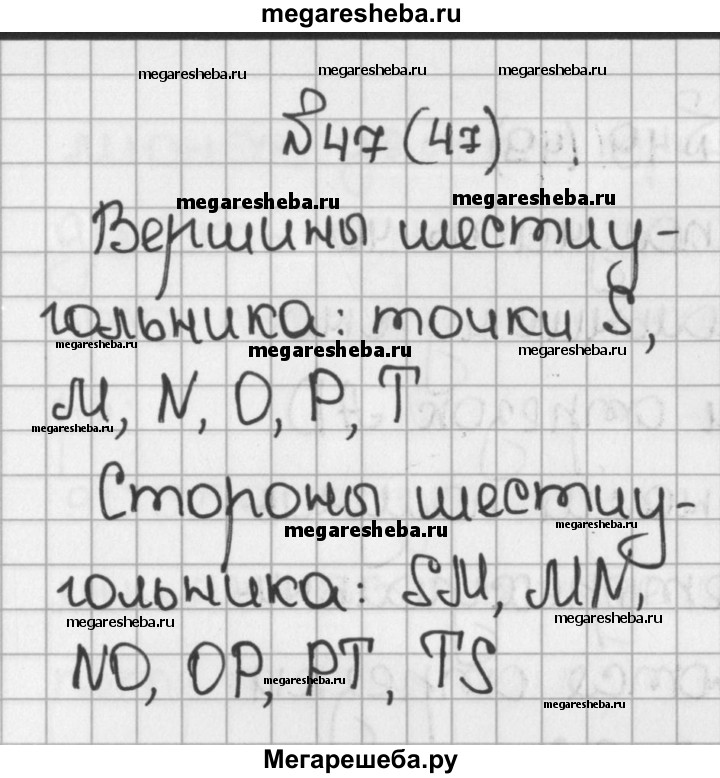 megaresheba.ru
megaresheba.ru megaresheba.ru megaresheba.ru
№47 (47)
megaresheba.ru megaresheba.ru
Вершины шестиу-
гольника: точки S,
megaresheba.ru megaresheba.ru megaresheba.ru
M, N, O, P, T
megaresheba.ru
Стороны шестиу-
megaresheba.ru megaresheba.ru
гольника: SM, MN,
megaresheba.ru megaresheba.ru
NO, OP, PT, TS
megaresheba.ru
megaresheba.ru
Мегарешеба.ру